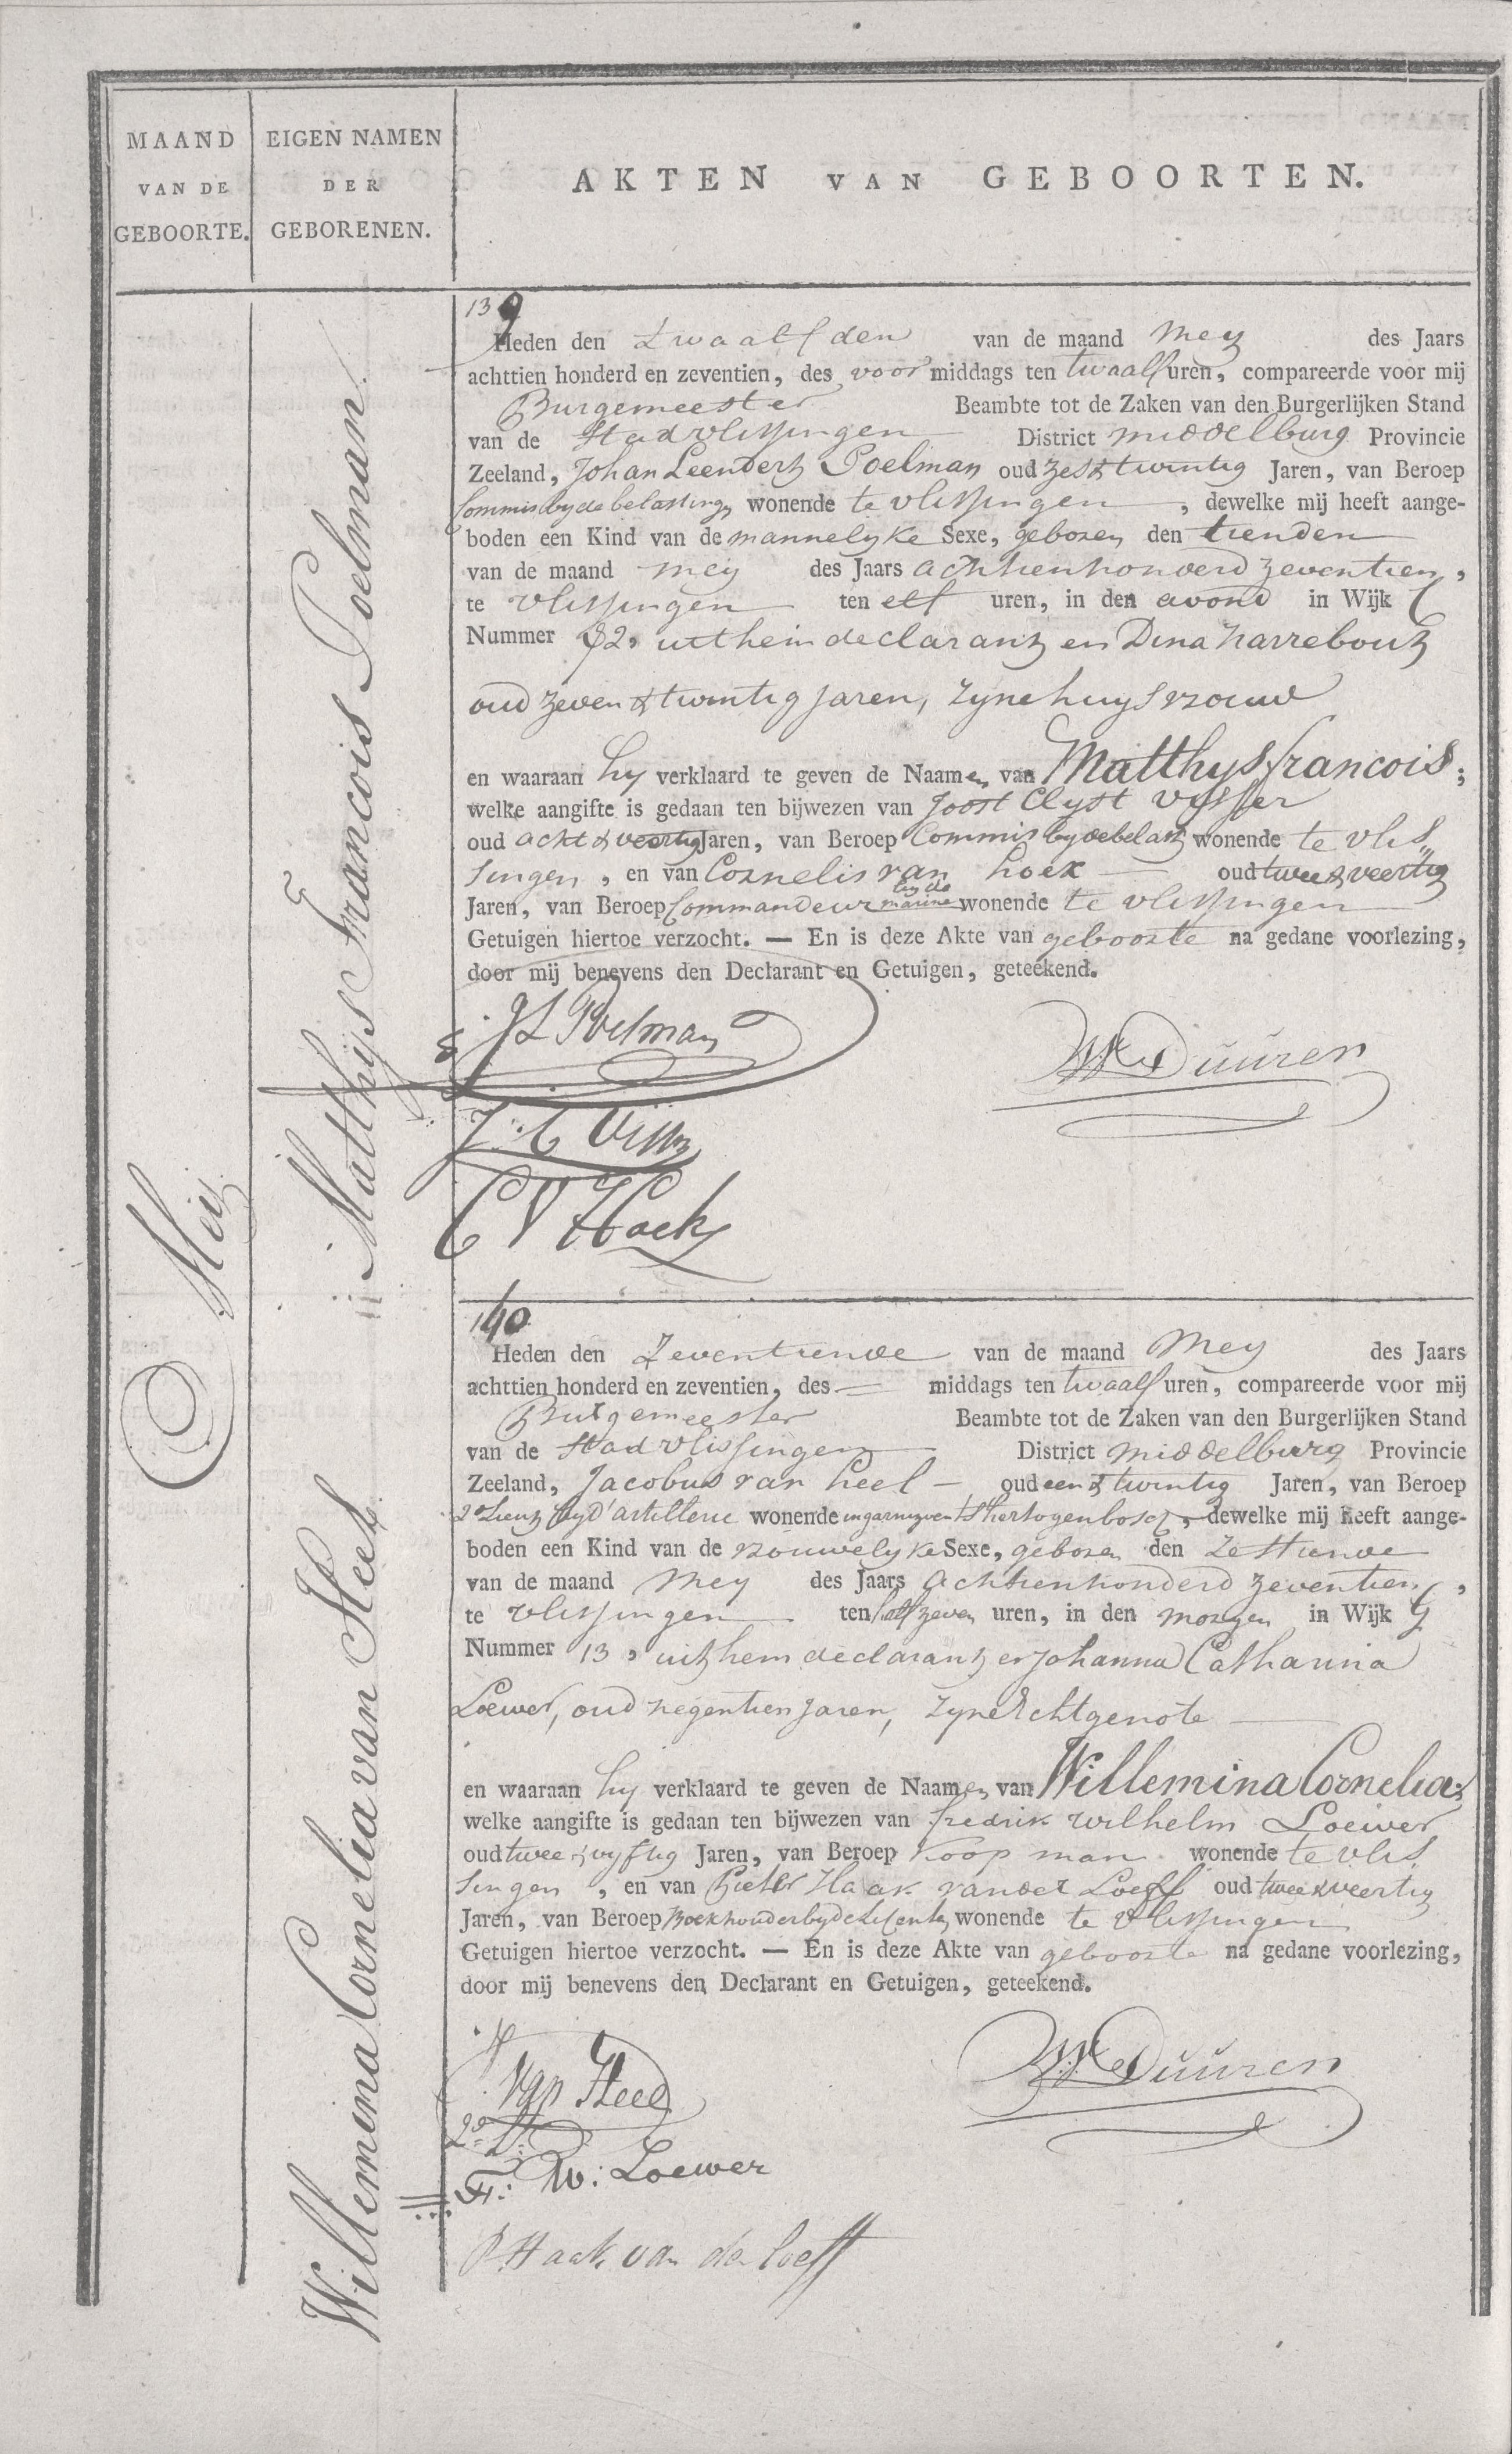 MAAND
VAN DE
GEBOORTE.
EIGEN NAMEN
DER
GEBORENEN.
AKTEN VAN GEBOORTEN.
Mey
Matthijs Francois Poelman.
139
Heden den twaalfden van de maand Mey des Jaars
achttien honderd en zeventien, des voormiddags ten twaalf uren, compareerde voor mij
Burgemeester Beambte tot de Zaken van den Burgerlijken Stand
van de Stad Vlissingen District Middelburg Provincie
Zeeland, Johan Leendert Poelman oud zes & twintig Jaren, van Beroep
Commis by de belasting, wonende te Vlissingen, dewelke mij heeft aange-
boden een Kind van de mannelyke Sexe, geboren den tienden
van de maand mey des Jaars achttienhonderd zeventien,
te Vlissingen ten elf uren, in den avond in Wijk
Nummer 92, uit hem declarant en Dina Harrebout
oud zeven & twintig jaren, zyne huysvrouw
en waaraan hy verklaard te geven de Naamen van Matthys francois;
welke aangifte is gedaan ten bijwezen van Joost Clyst Visser
oud acht & veertig Jaren, van Beroep Commis by de belast wonende te Vlis„
singen, en van Cornelis van hoek oud twee & veertig
Jaren, van Beroep Commandeur by de marine wonende te Vlissingen
Getuigen hiertoe verzocht. — En is deze Akte van geboorte na gedane voorlezing,
door mij benevens den Declarant en Getuigen, geteekend.
J L Poelman
W V Duuren
J. C Visser
C V Hoek
Willemina Cornelia van Heel
140
Heden den Zeventiende van de maand Mey des Jaars
achttien honderd en zeventien, des middags ten twaalf uren, compareerde voor mij
Burgemeester Beambte tot de Zaken van den Burgerlijken Stand
van de Stad Vlissingen District Middelburg Provincie
Zeeland, Jacobus van heel oud een & twintig Jaren, van Beroep
2e Lieut by d'artillerie wonende in garnizoen t's hertogenbosch, dewelke mij heeft aange-
boden een Kind van de vrouwelyke Sexe, geboren den zestiende
van de maand Mey des Jaars achttienhonderd zeventien,
te Vlissingen ten half zeven uren, in den morgen in Wijk G
Nummer 13, uit hem declarant en Johanna Catharina
Loewer, oud negentien jaren, zyne Echtgenote
en waaraan hy verklaard te geven de Naamen van Willemina Cornelia;
welke aangifte is gedaan ten bijwezen van fredrik wilhelm Loewer
oud twee & vyftig Jaren, van Beroep Koopman wonende te Vlis
singen, en van Pieter Haak van der Loeff oud twee & veertig
Jaren, van Beroep Boekhouder by de wonende te Vlissingen
Getuigen hiertoe verzocht. — En is deze Akte van geboorte na gedane voorlezing,
door mij benevens den Declarant en Getuigen, geteekend.
J Van Heel
W. V Duuren
2e Lt.
F: W: Loewer
P Haak van der Loeff